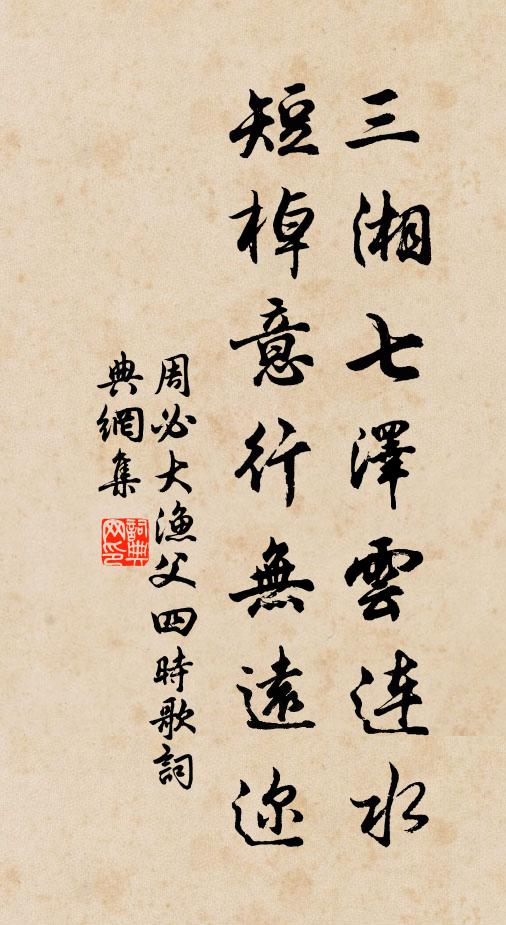 三湘七澤雲連水
短棹意行無遠迩
周必大漁父四時歌詞
典網集
詞典網印